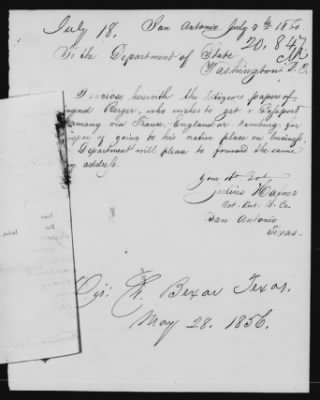 July 18.
San Antonio July 7th 18
20.847
To the Department of State
Washington D.C.
I enclose herewith the Citizens papers of
Berger, who wishes to get a Passport
Germany via France, England or Hamburg for
purpose of going to his native place on business.
Department will please to forward the same
my address.
Your Obt Svt
Julius
Not. Pub. B. Co.
San Antonio
Texas.
Bexar Texas.
May 28. 1856.